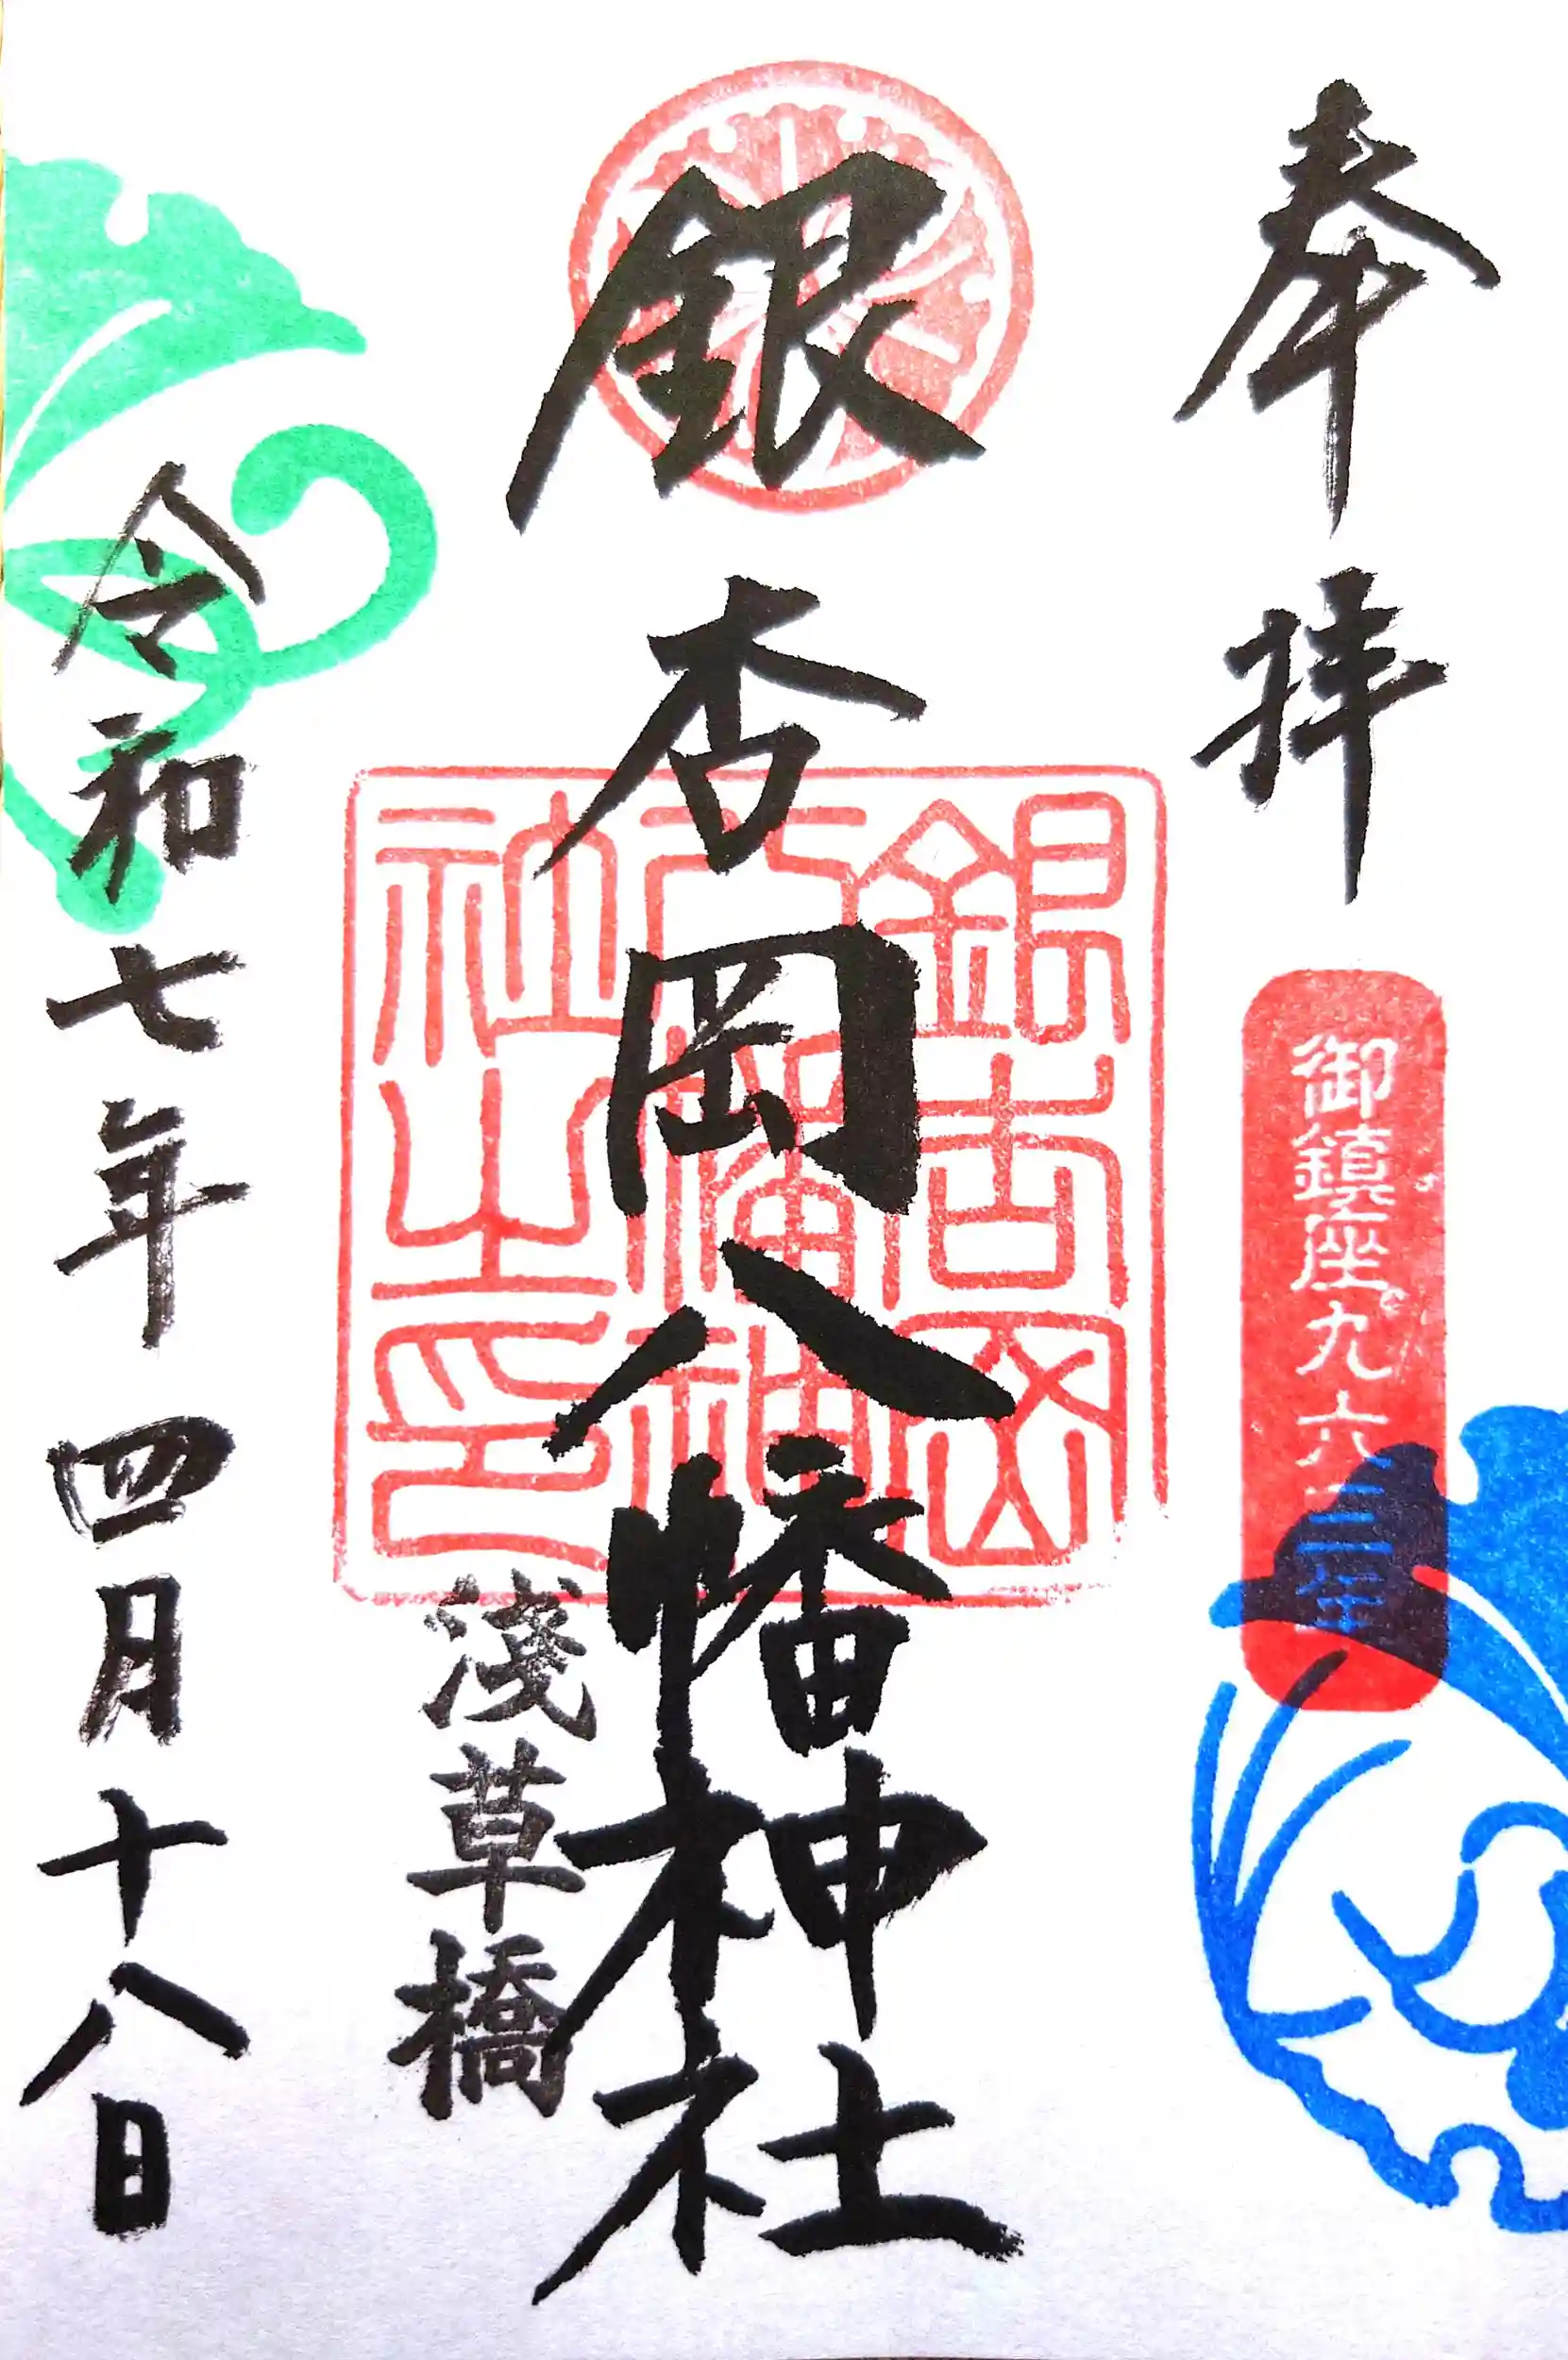 奉拝
御鎮座九六三年
銀杏岡八幡神社
銀杏岡
八幡神
社之印
淺草橋
令和七年四月十八日